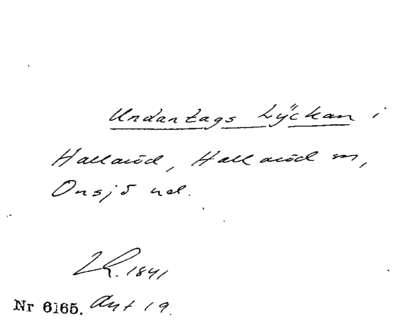 Undantags Lÿckan i
Hallaröd, Hallaröd sn,
Onsjö hd.
LR. 1841
Nr 6165. Avt 19.